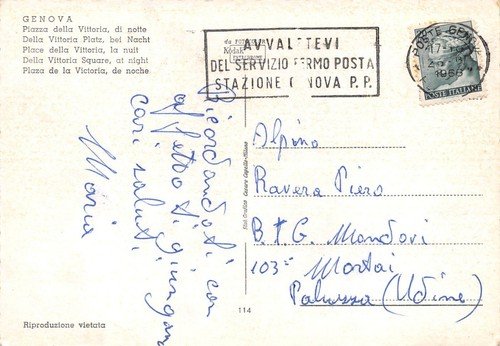 GENOVA
Piazza della Vittoria, di notte
Della Vittoria Platz, bei Nacht
Place della Vittoria, la nuit
Della Vittoria Square, at night
Plaza de la Victoria, de noche
Kodak
AVVALETEVI
DEL SERVIZIO FERMO POSTA
STAZIONE GENOVA P.P.
POSTE GENOVA
17-
1968
POSTE ITALIANE
Ricordandoti con
affetto ti giungano
cari saluti
Maria
Alpino
Ravera Piero
BTG. Mondovi
103ª Mortai
Paluzza (Udine)
Cesare Capello-Milano
114
Riproduzione vietata